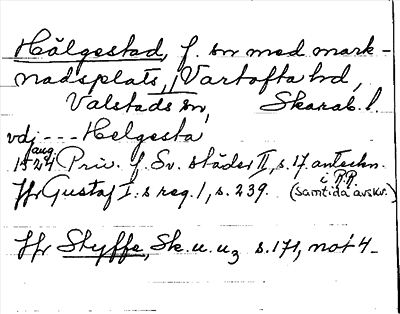 Hälgestad, f. sn med mark-
nadsplats, i Vartofta hd,
Valstads sn, Skarab. l.
vdj --- Helgesta
aug.
1524 Priv. f. Sv. städer II, s. 17. anteckn.
i P.P.
Jfr Gustaf I:s reg. 1, s. 239. (samtida avskr.)
Jfr Styffe, Sk. u. u3 s. 171, not 4-